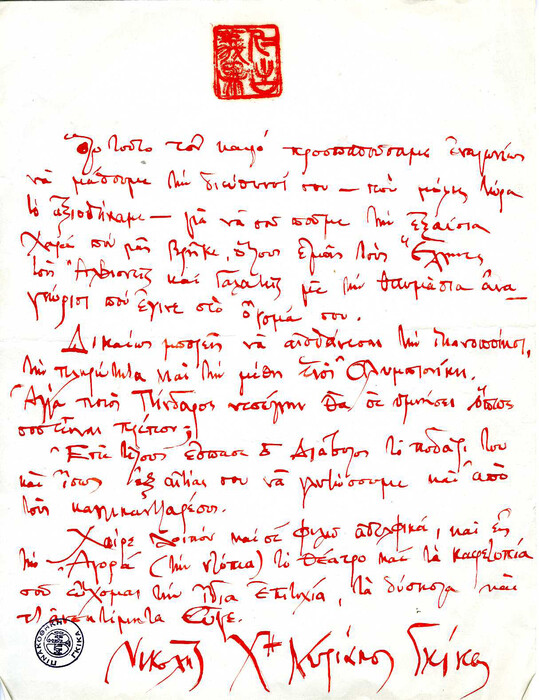 Ὅλο τοῦτο τὸν καιρὸ προσπαθούσαμε ἐναγωνίως
νὰ μάθουμε τὴν διεύθυνσί σου — ποὺ μόλις τώρα
τὸ ἀξιωθήκαμε — γιὰ νὰ σοῦ ποῦμε τὴν ἐξαίσια
χαρὰ ποὺ μᾶς βρῆκε, ὅλους ἐμᾶς τοὺς Ἕλληνες
τῆς Ἀλβιόνος καὶ Γαλατίας μὲ τὴν θαυμάσια ἀνα-
γνώρισι ποὺ ἔγινε στὸ ὄνομά σου.
Δικαίως μπορεῖς νὰ αἰσθάνεσαι τὴν ἱκανοποίησι,
τὴν πληρότητα καὶ τὴν μέθη ἑνὸς Ὀλυμπιονίκη.
Ἀλλὰ ποιὸς Πίνδαρος θὰ σὲ ὑμνήσει ὅπως
σοῦ εἶναι πρέπον;
Ἐπὶ τέλους ἔσπασε ὁ Διάβολος τὸ ποδάρι του
καὶ ἴσως ἐξ αἰτίας σου νὰ γλυτώσουμε καὶ ἀπὸ
τοὺς καλλικαντζάρους.
Χαῖρε λοιπὸν καὶ σὲ φιλῶ ἀδελφικά, καὶ εἰς
τὴν Ἀγορὰ (τὴν ντόπια) τὸ θέατρο καὶ τὰ καφετοπία
σοῦ εὔχομαι τὴν ἴδια ἐπιτυχία, τὰ δύσκολα καὶ
τὰ ἀνεκτίμητα Εὖγε.
Νικολῆς Χʰ Κυριάκος Γκίκας
ΠΙΝΑΚΟΘΗΚΗ ΓΚΙΚΑ